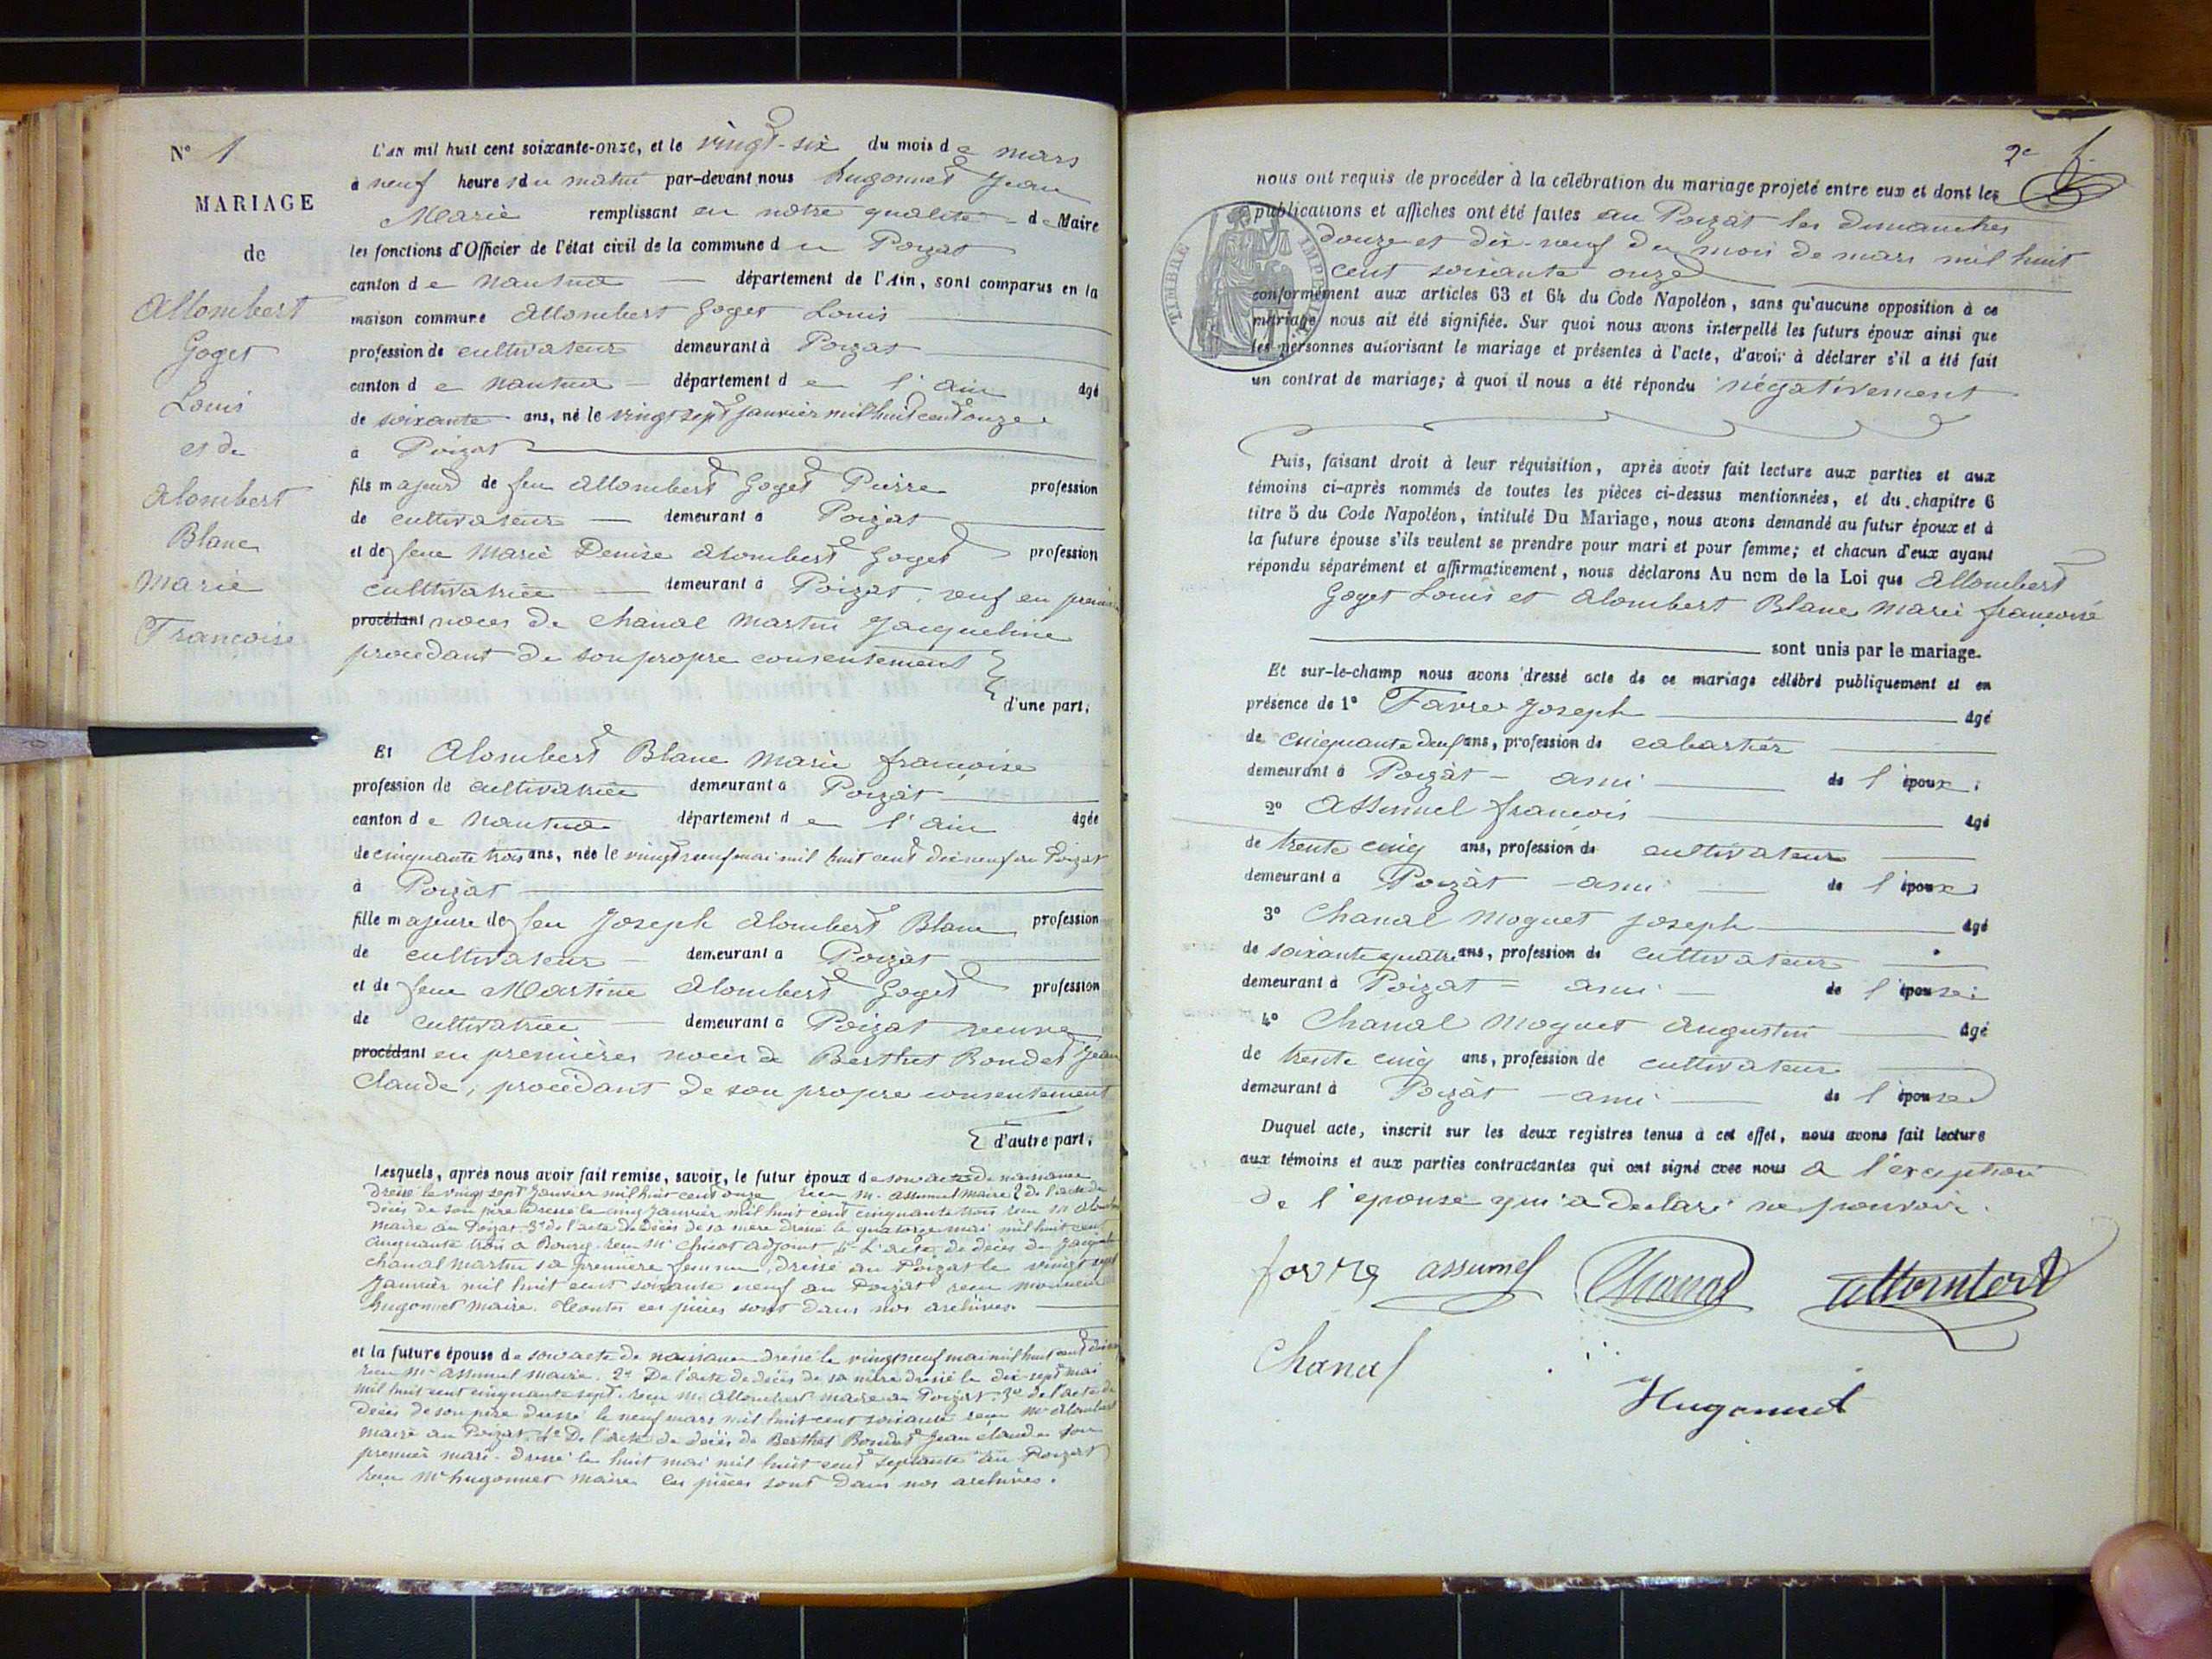 N° 1
MARIAGE
de
Allombert
Goget
Louis
et de
Alombert
Blanc
Marie
Françoise
L'AN mil huit cent soixante-onze, et le vingt-six du mois de mars
à neuf heures du matin par-devant nous hugonnet Jean
Marie remplissant en notre qualité de Maire
les fonctions d'Officier de l'état civil de la commune du Poizat
canton de Nantua département de l'Ain, sont comparus en la
maison commune Allombert Goget Louis
profession de cultivateur demeurant à Poizat
canton de Nantua département de l'ain âgé
de soixante ans, né le vingt sept janvier mil huit cent onze
à Poizat
fils majeur de feu Allombert Goget Pierre profession
de cultivateur demeurant à Poizat
et de feue Marie Denise Alombert Goget profession
cultivatrice demeurant à Poizat, veuf en
procédant noces de Chanal Martin Jacqueline
procedant de son propre consentement
d'une part,
Et Alombert Blanc Marie françoise
profession de cultivatrice demeurant à Poizàt
canton de Nantua département de l'ain âgée
de cinquante trois ans, née le vingt neuf mai mil huit cent dix neuf au Poizat
à Poizàt
fille majeure de feu Joseph Alombert Blanc profession
de cultivateur demeurant à Poizàt
et de feue Martine Alombert Goget profession
de cultivatrice demeurant à Poizat veuve
procédant en premières noces de Berthet Bondet Jean
Claude, procédant de son propre consentement
d'autre part,
Lesquels, après nous avoir fait remise, savoir, le futur époux de son acte de naissance
dressé le vingt sept Janvier mil huit cent onze reçu M. assumel maire 2° de l'acte de
décès de son père dressé le cinq Janvier mil huit cent cinquante trois reçu
maire au Poizat 3° de l'acte de décès de sa mère dressé le quatorze mai mil huit cent
cinquante trois a Bourg reçu Mr adjoint 4° L'acte de décès de
chanal martin sa première femme, dressé au Poizat le vingt sept
Janvier mil huit cent soixante neuf au Poizat reçu monsieur
hugonnet maire. Toutes ces pièces sont dans nos archives.
et la future épouse de son acte de naissance dressé le vingt neuf mai mil huit cent
reçu Mr assumel maire. 2° De l'acte de décès de sa mère dressé le dix-sept mai
mil huit cent cinquante sept reçu Mr Allombert maire au Poizat. 3° de l'acte de
décès de son père dressé le neuf mars mil huit cent soixante reçu Mr Alombert
maire au Poizat 4° De l'acte de décès de Berthet Bondet Jean claude son
premier mari dressé le huit mai mil huit cent septante au Poizat
reçu Mr hugonnet maire ces pièces sont dans nos archives.
2e f.
nous ont requis de procéder à la célébration du mariage projeté entre eux et dont les
publications et affiches ont été faites au Poizàt les dimanches
douze et dix-neuf du mois de mars mil huit
cent soixante onze
TIMBRE
conformément aux articles 63 et 64 du Code Napoléon, sans qu'aucune opposition à ce
mariage nous ait été signifiée. Sur quoi nous avons interpellé les futurs époux ainsi que
les personnes autorisant le mariage et présentes à l'acte, d'avoir à déclarer s'il a été fait
un contrat de mariage; à quoi il nous a été répondu négativement
Puis, faisant droit à leur réquisition, après avoir fait lecture aux parties et aux
témoins ci-après nommés de toutes les pièces ci-dessus mentionnées, et du chapitre 6
titre 5 du Code Napoléon, intitulé Du Mariage, nous avons demandé au futur époux et à
la future épouse s'ils veulent se prendre pour mari et pour femme; et chacun d'eux ayant
répondu séparément et affirmativement, nous déclarons Au nom de la Loi que Allombert
Goget Louis et Alombert Blanc Marie françoise
sont unis par le mariage.
Et sur-le-champ nous avons dressé acte de ce mariage célébré publiquement et en
présence de 1° Favre Joseph âgé
de cinquante deux ans, profession de cabartier
demeurant à Poizàt ami de l'époux;
2° Assumel françois âgé
de trente cinq ans, profession de cultivateur
demeurant à Poizàt ami de l'époux;
3° Chanal Moguet Joseph âgé
de soixante quatre ans, profession de cultivateur
demeurant à Poizat ami de l'épouse;
4° Chanal Moguet Augustin âgé
de trente cinq ans, profession de cultivateur
demeurant à Poizàt ami de l'épouse
Duquel acte, inscrit sur les deux registres tenus à cet effet, nous avons fait lecture
aux témoins et aux parties contractantes qui ont signé avec nous a l'exception
de l'épouse qui a declaré ne pouvoir.
favre assumel Chanal allombert
Chanal
Hugonnet